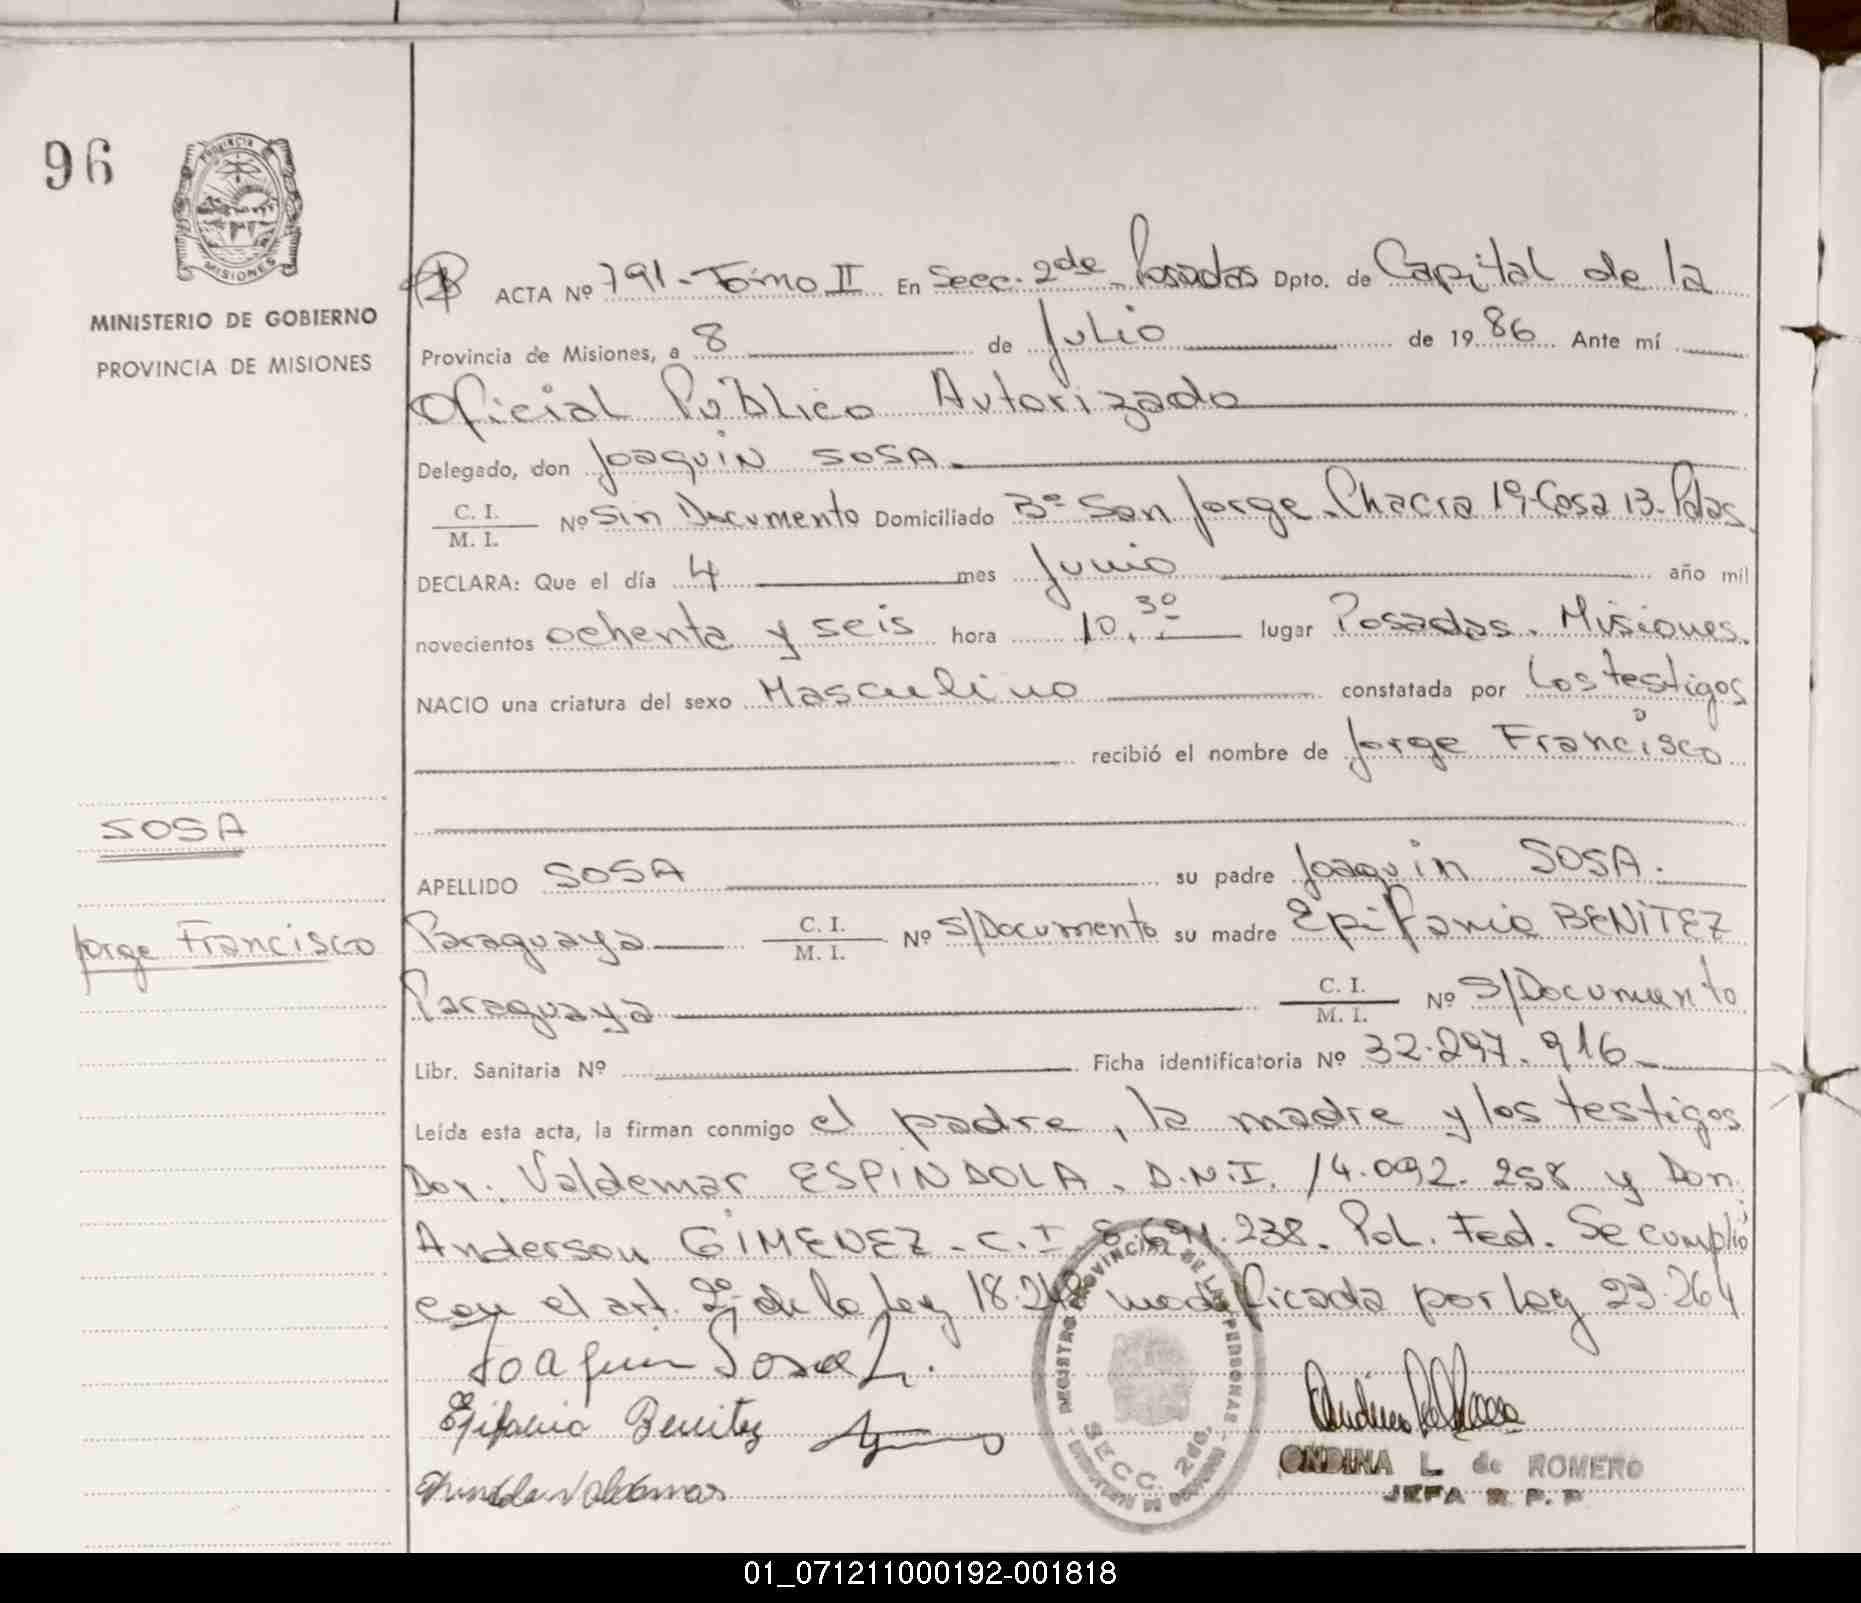 96
PROVINCIA
MISIONES
MINISTERIO DE GOBIERNO
PROVINCIA DE MISIONES
ACTA Nº 791 - Tomo II En Secc. 2da Posadas Dpto. de Capital de la
Provincia de Misiones, a 8 de Julio de 1986 Ante mí
Oficial Público Autorizado
Delegado, don Joaquin SOSA
C. I.
M. I. Nº Sin Documento Domiciliado Bº San Jorge - Chacra 19, Casa 13. Pdas.
DECLARA: Que el día 4 mes Junio año mil
novecientos ochenta y seis hora 10,30 lugar Posadas. Misiones.
NACIO una criatura del sexo Masculino constatada por Los testigos
recibió el nombre de Jorge Francisco
SOSA
APELLIDO SOSA su padre Joaquin SOSA.
Jorge Francisco
Paraguaya C. I. M. I. Nº S/Documento su madre Epifania BENITEZ
Paraguaya C. I. M. I. Nº S/Documento
Libr. Sanitaria Nº Ficha identificatoria Nº 32.297.916
Leída esta acta, la firman conmigo el padre, la madre y los testigos
Don. Valdemar ESPINDOLA. D.N.I. 14.092.258 y Don
Anderson GIMENEZ - C.I 8.691.238. Pol. Fed. Se cumplió
con el art. 2º de la Ley 18.248 modificada por Ley 23.264
Joaquin Sosa L.
Epifania Benitez
Valdemar
REGISTRO PROVINCIAL DE LAS PERSONAS
SECC. 2da.
ONDINA L. de ROMERO
JEFA R. P. P.
01_071211000192-001818